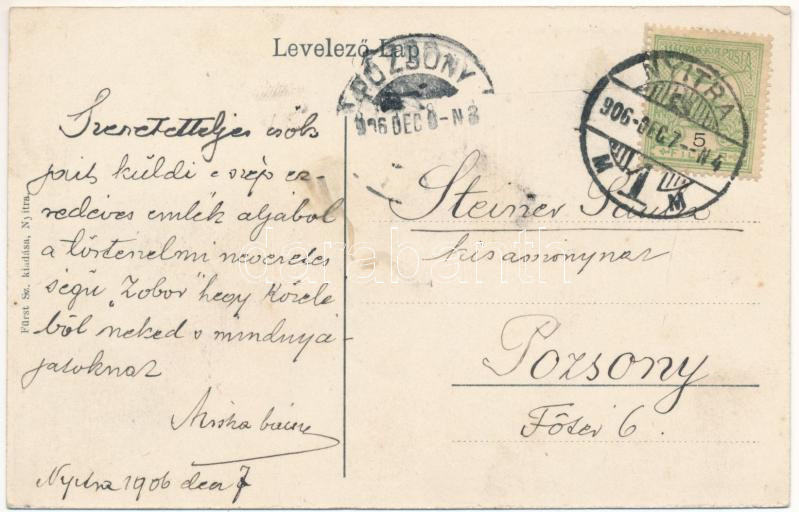 Levelező-Lap
POZSONY
906 DEC 8-N 8
MAGYAR KIR. POSTA
NYITRA
906-DEC.7.-N4
5
M M
Szeretetteljes csók
jait küldi e szép ez
redéves emlék aljából
a történelmi nevezetes
ségü „Zobor" hegy közelé
ből neked s mindnyá-
jatoknak
Miska
Nyitra 1906 dec 7
Steiner
kisasszonynak
Pozsony
Főtér 6.
Fürst Sz. kiadása, Nyitra.
darabanth